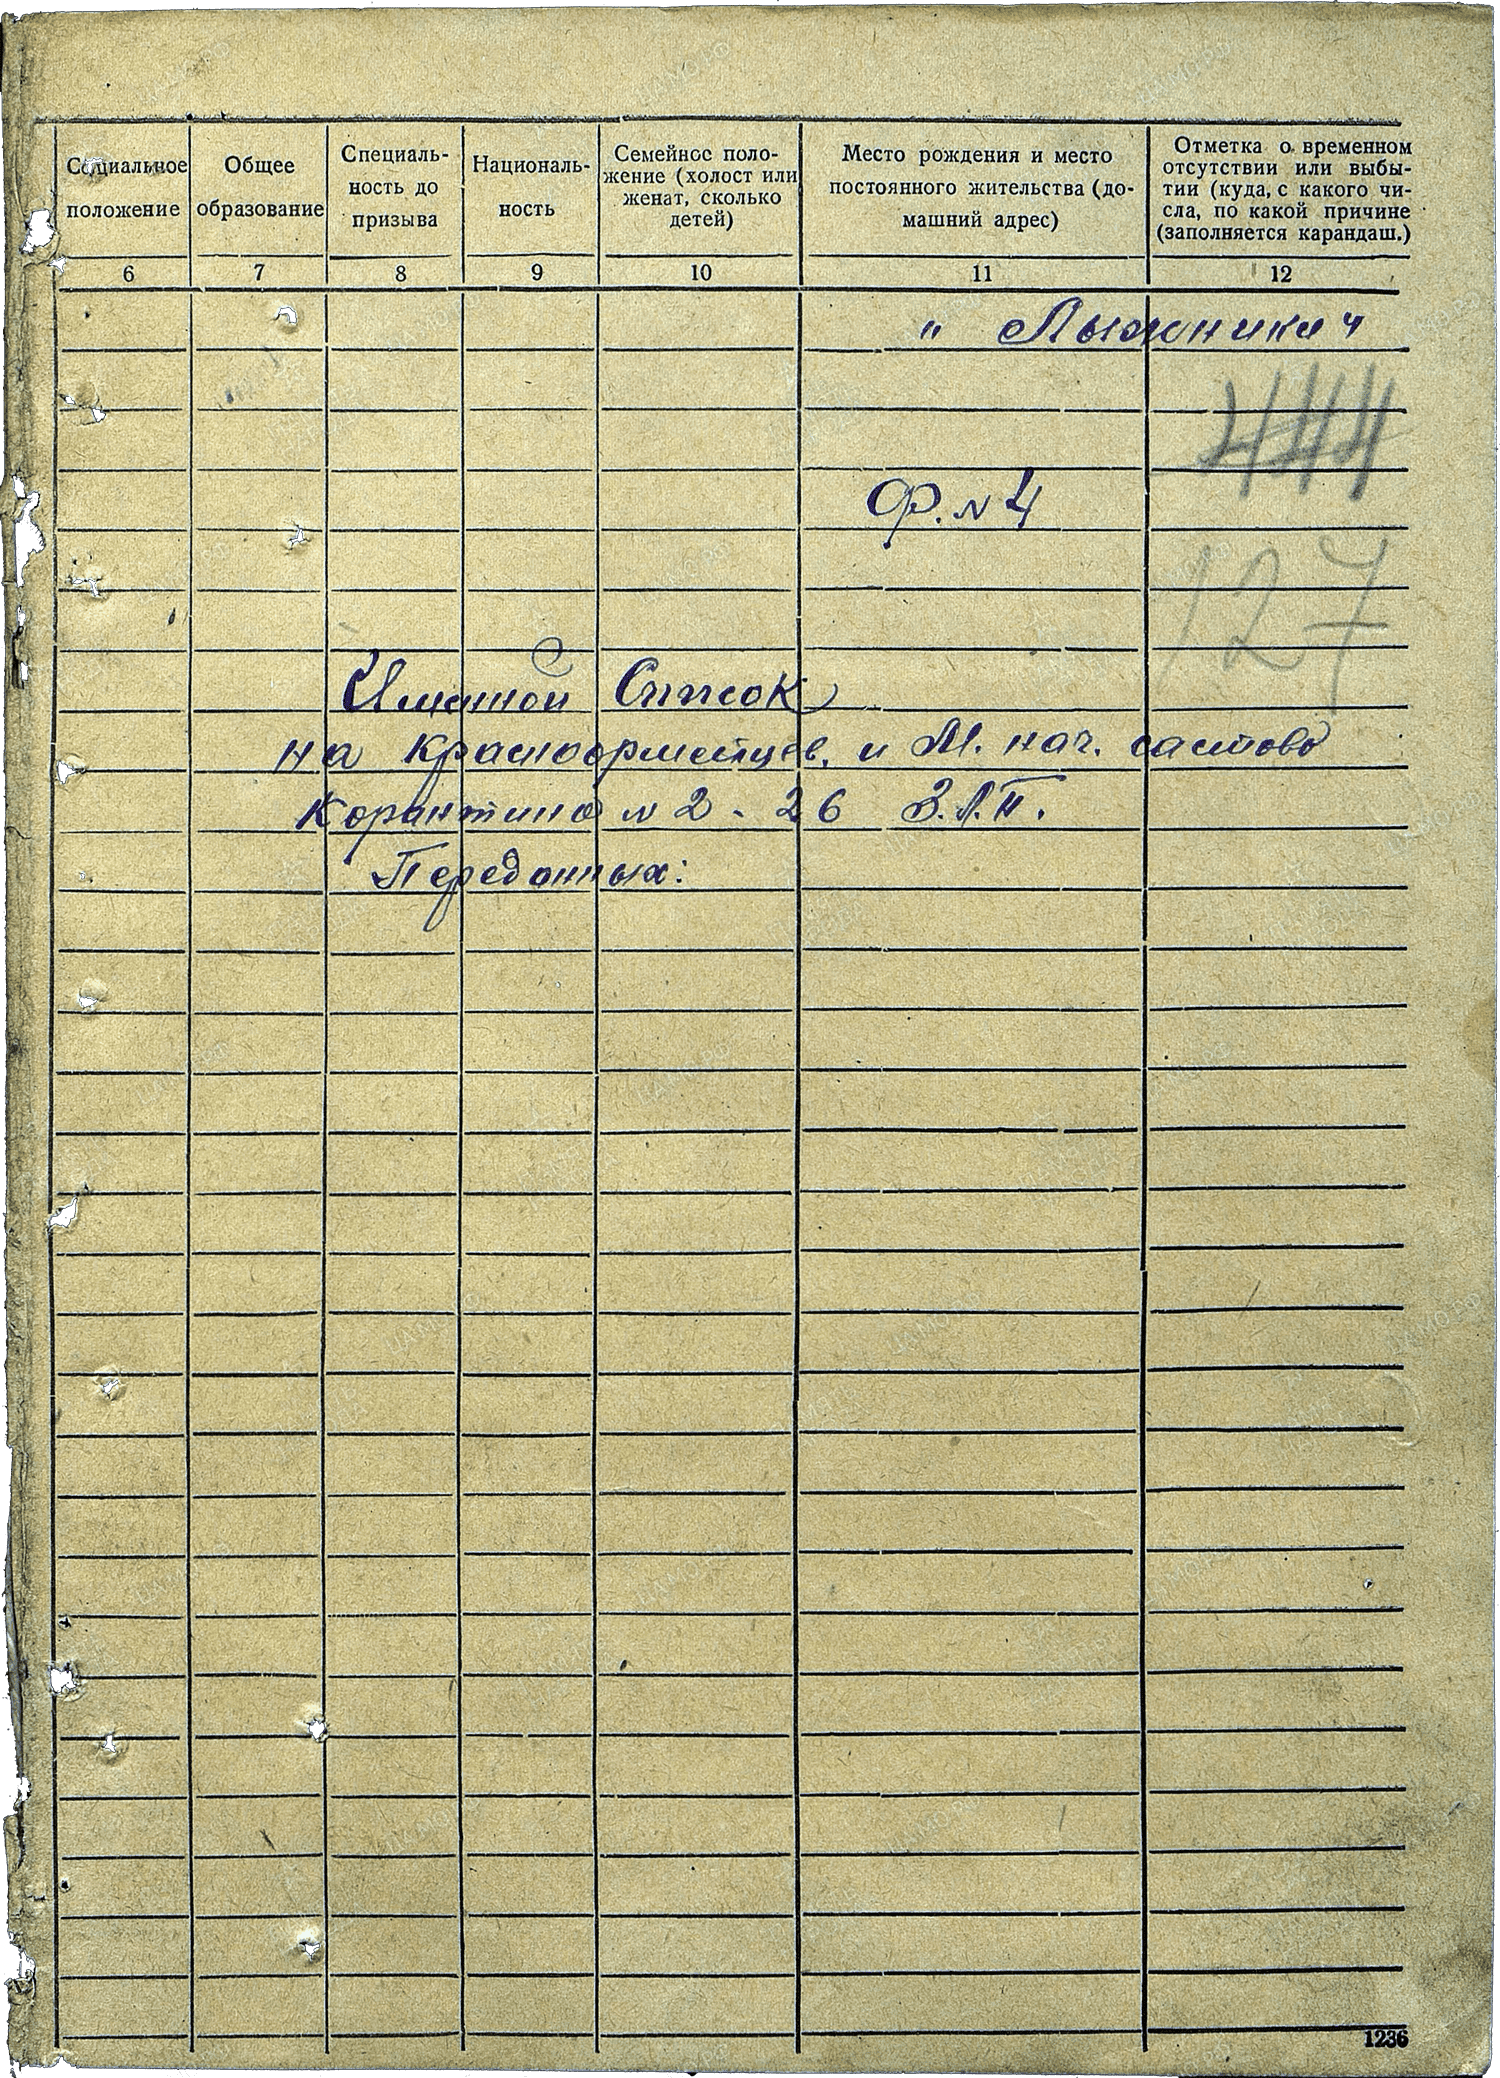 Социальное положение
Общее образование
Специаль-
ность до
призыва
Националь-
ность
Семейнос поло-
жение (холост или
женат, сколько
детей)
Место рождения и место
постоянного жительства (до-
машний адрес)
Отметка о временном
отсутствии или выбы-
тии (куда, с какого чи-
сла, по какой причине
(заполняется карандаш.)
6 7 8 9 10 11 12
" Лыжники "
444
Ф. N 4
127
Имянной Список
на Красноармейцев, и М. нач. састово
Корантина N 2 - 26 З.Л.П.
Переданных:
1236